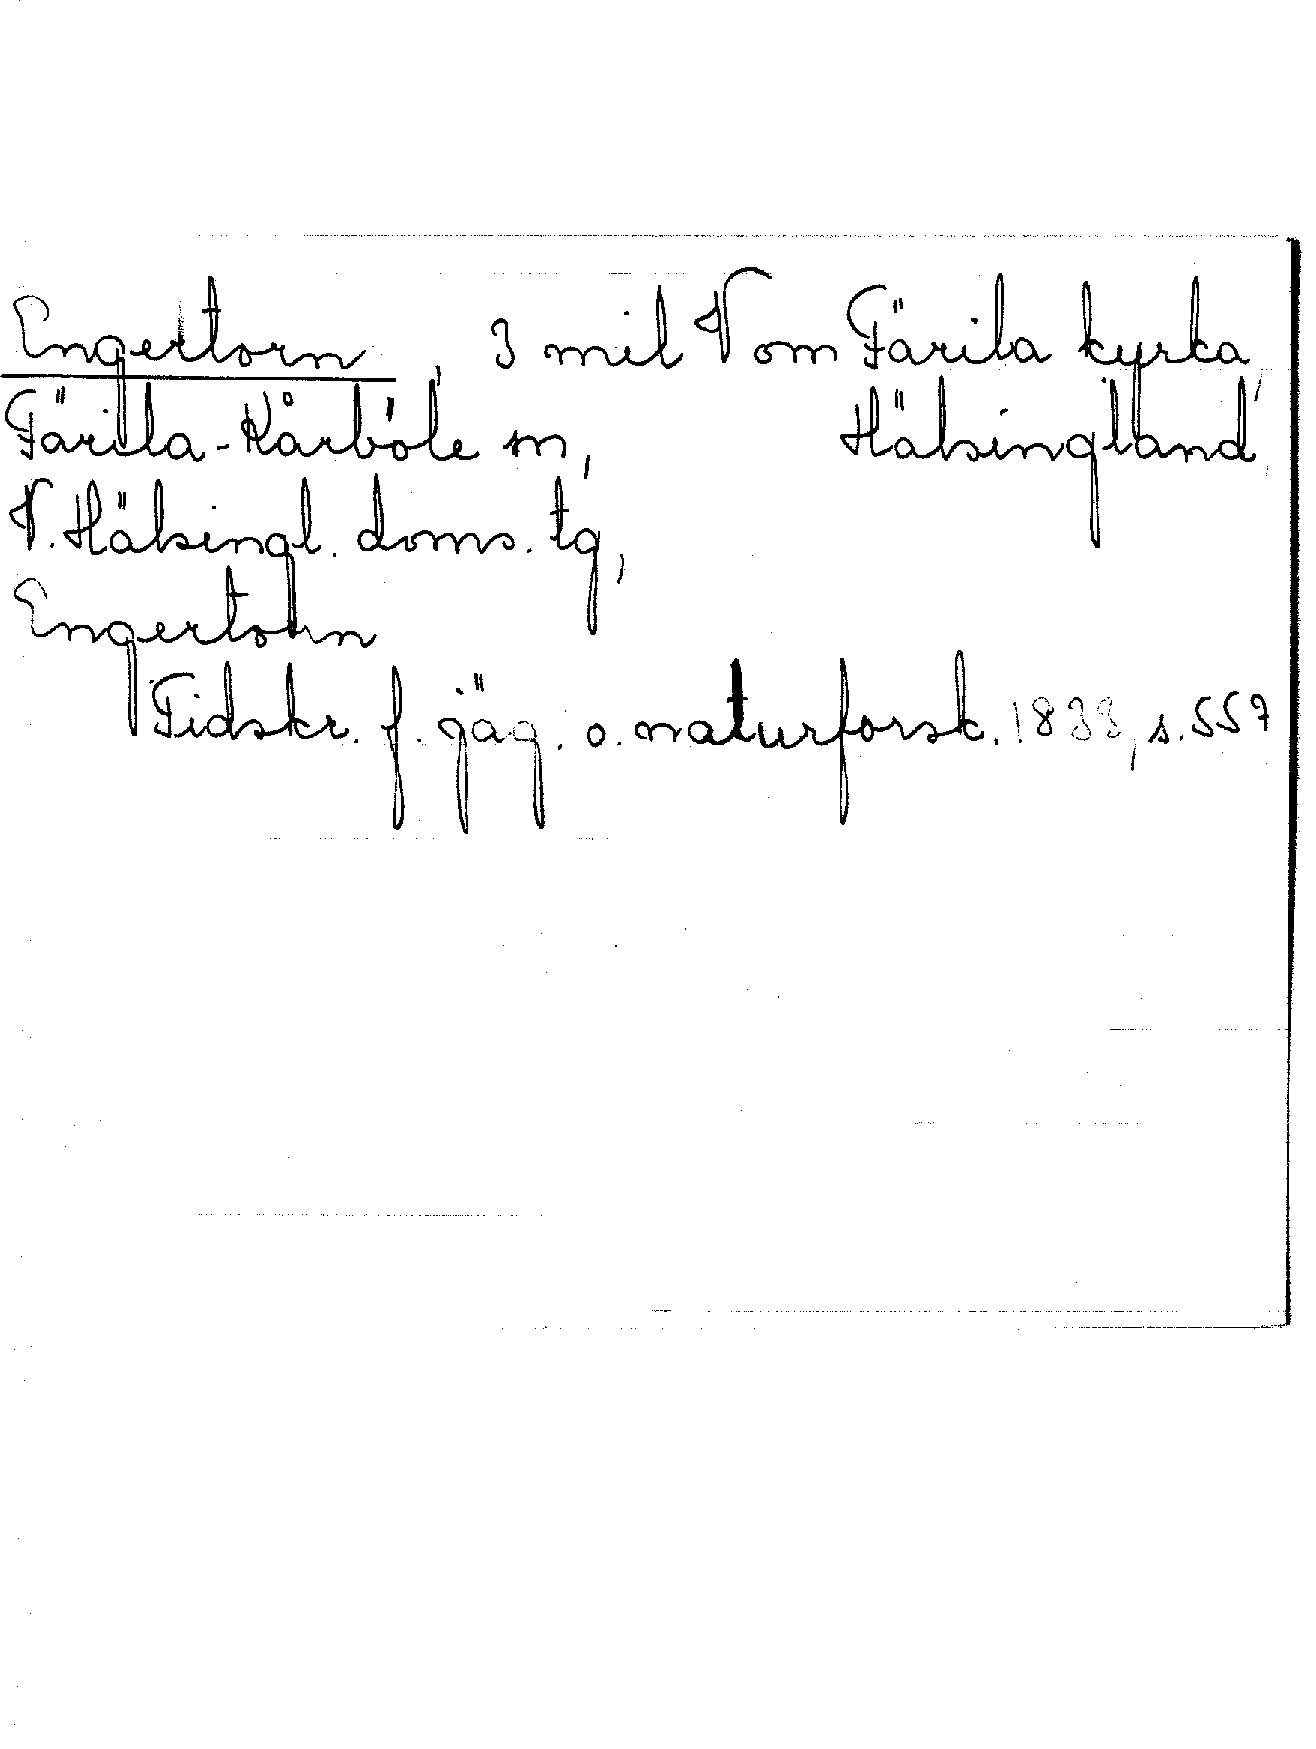 Engertorn, 3 mil V om Färila kyrka,
Färila-Kårböle sn, Hälsingland
V. Hälsingl. doms. tg,
Engertorn
Tidskr. f. jäg. o. naturforsk. 1833, s. 557